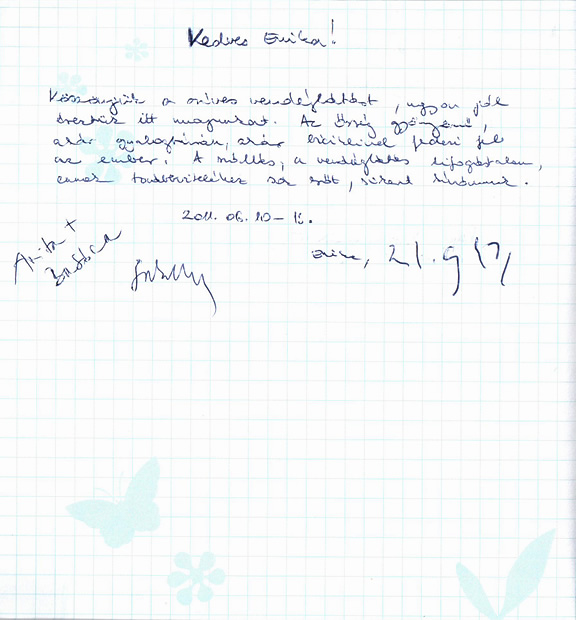 Kedves Erika!
Köszönjük a szíves vendéglátást, ugyan jól
éreztük itt magunkat. Az Őrség gyönyörű,
akár gyalogtúrán, akár biciklivel fedezi fel
az ember. A szállás, a vendéglátás kifogástalan,
ennek továbbviteléhez sok erőt, sikert kívánunk.
2011. 06. 10-
Anita +